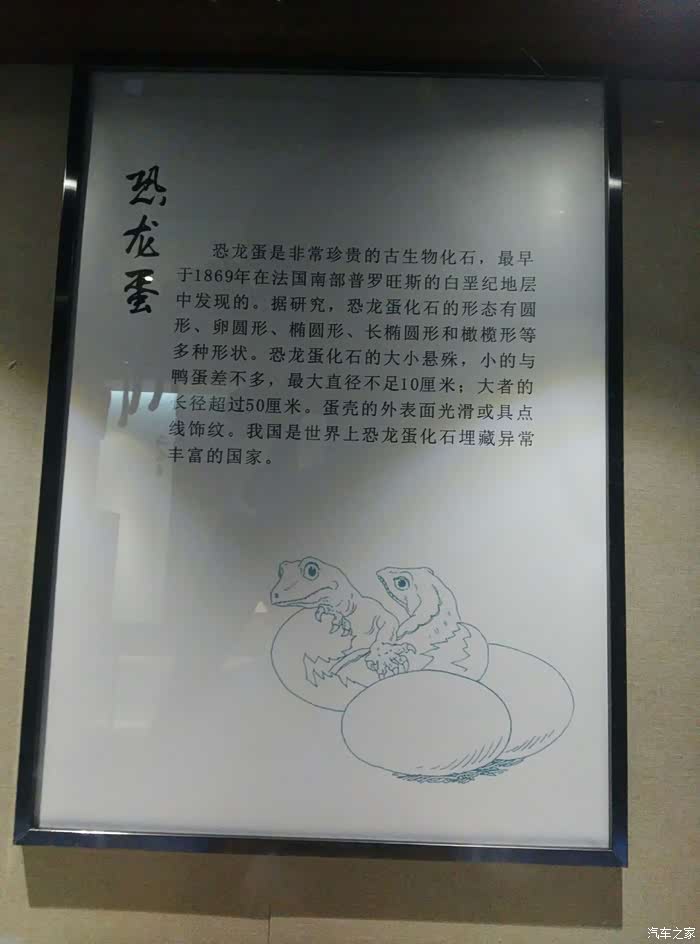 恐龙蛋
恐龙蛋是非常珍贵的古生物化石，最早
于1869年在法国南部普罗旺斯的白垩纪地层
中发现的。据研究，恐龙蛋化石的形态有圆
形、卵圆形、椭圆形、长椭圆形和橄榄形等
多种形状。恐龙蛋化石的大小悬殊，小的与
鸭蛋差不多，最大直径不足10厘米；大者的
长径超过50厘米。蛋壳的外表面光滑或具点
线饰纹。我国是世界上恐龙蛋化石埋藏异常
丰富的国家。
汽车之家